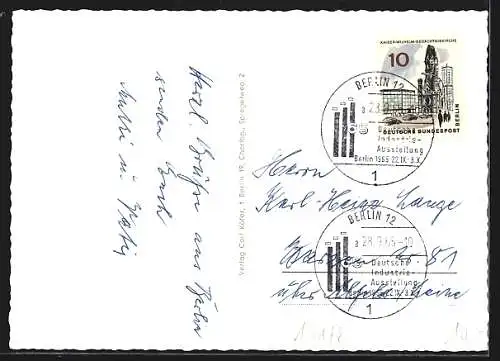 Herzl. Grüße aus Berlin
senden Euch
Mutti u.
Verlag Carl Köfer, 1 Berlin 19, Csterhp., Spiegelweg 2
KAISER-WILHELM-GEDÄCHTNISKIRCHE
10
DEUTSCHE BUNDESPOST
BERLIN
BERLIN 12
Industrie-
Ausstellung
Berlin 1965 22.IX.-3.X.
1
Herrn
Karl-Heinz Lange
BERLIN 12
a 28.9.65-10
Deutsche
Industrie
Ausstellung
1
51
über